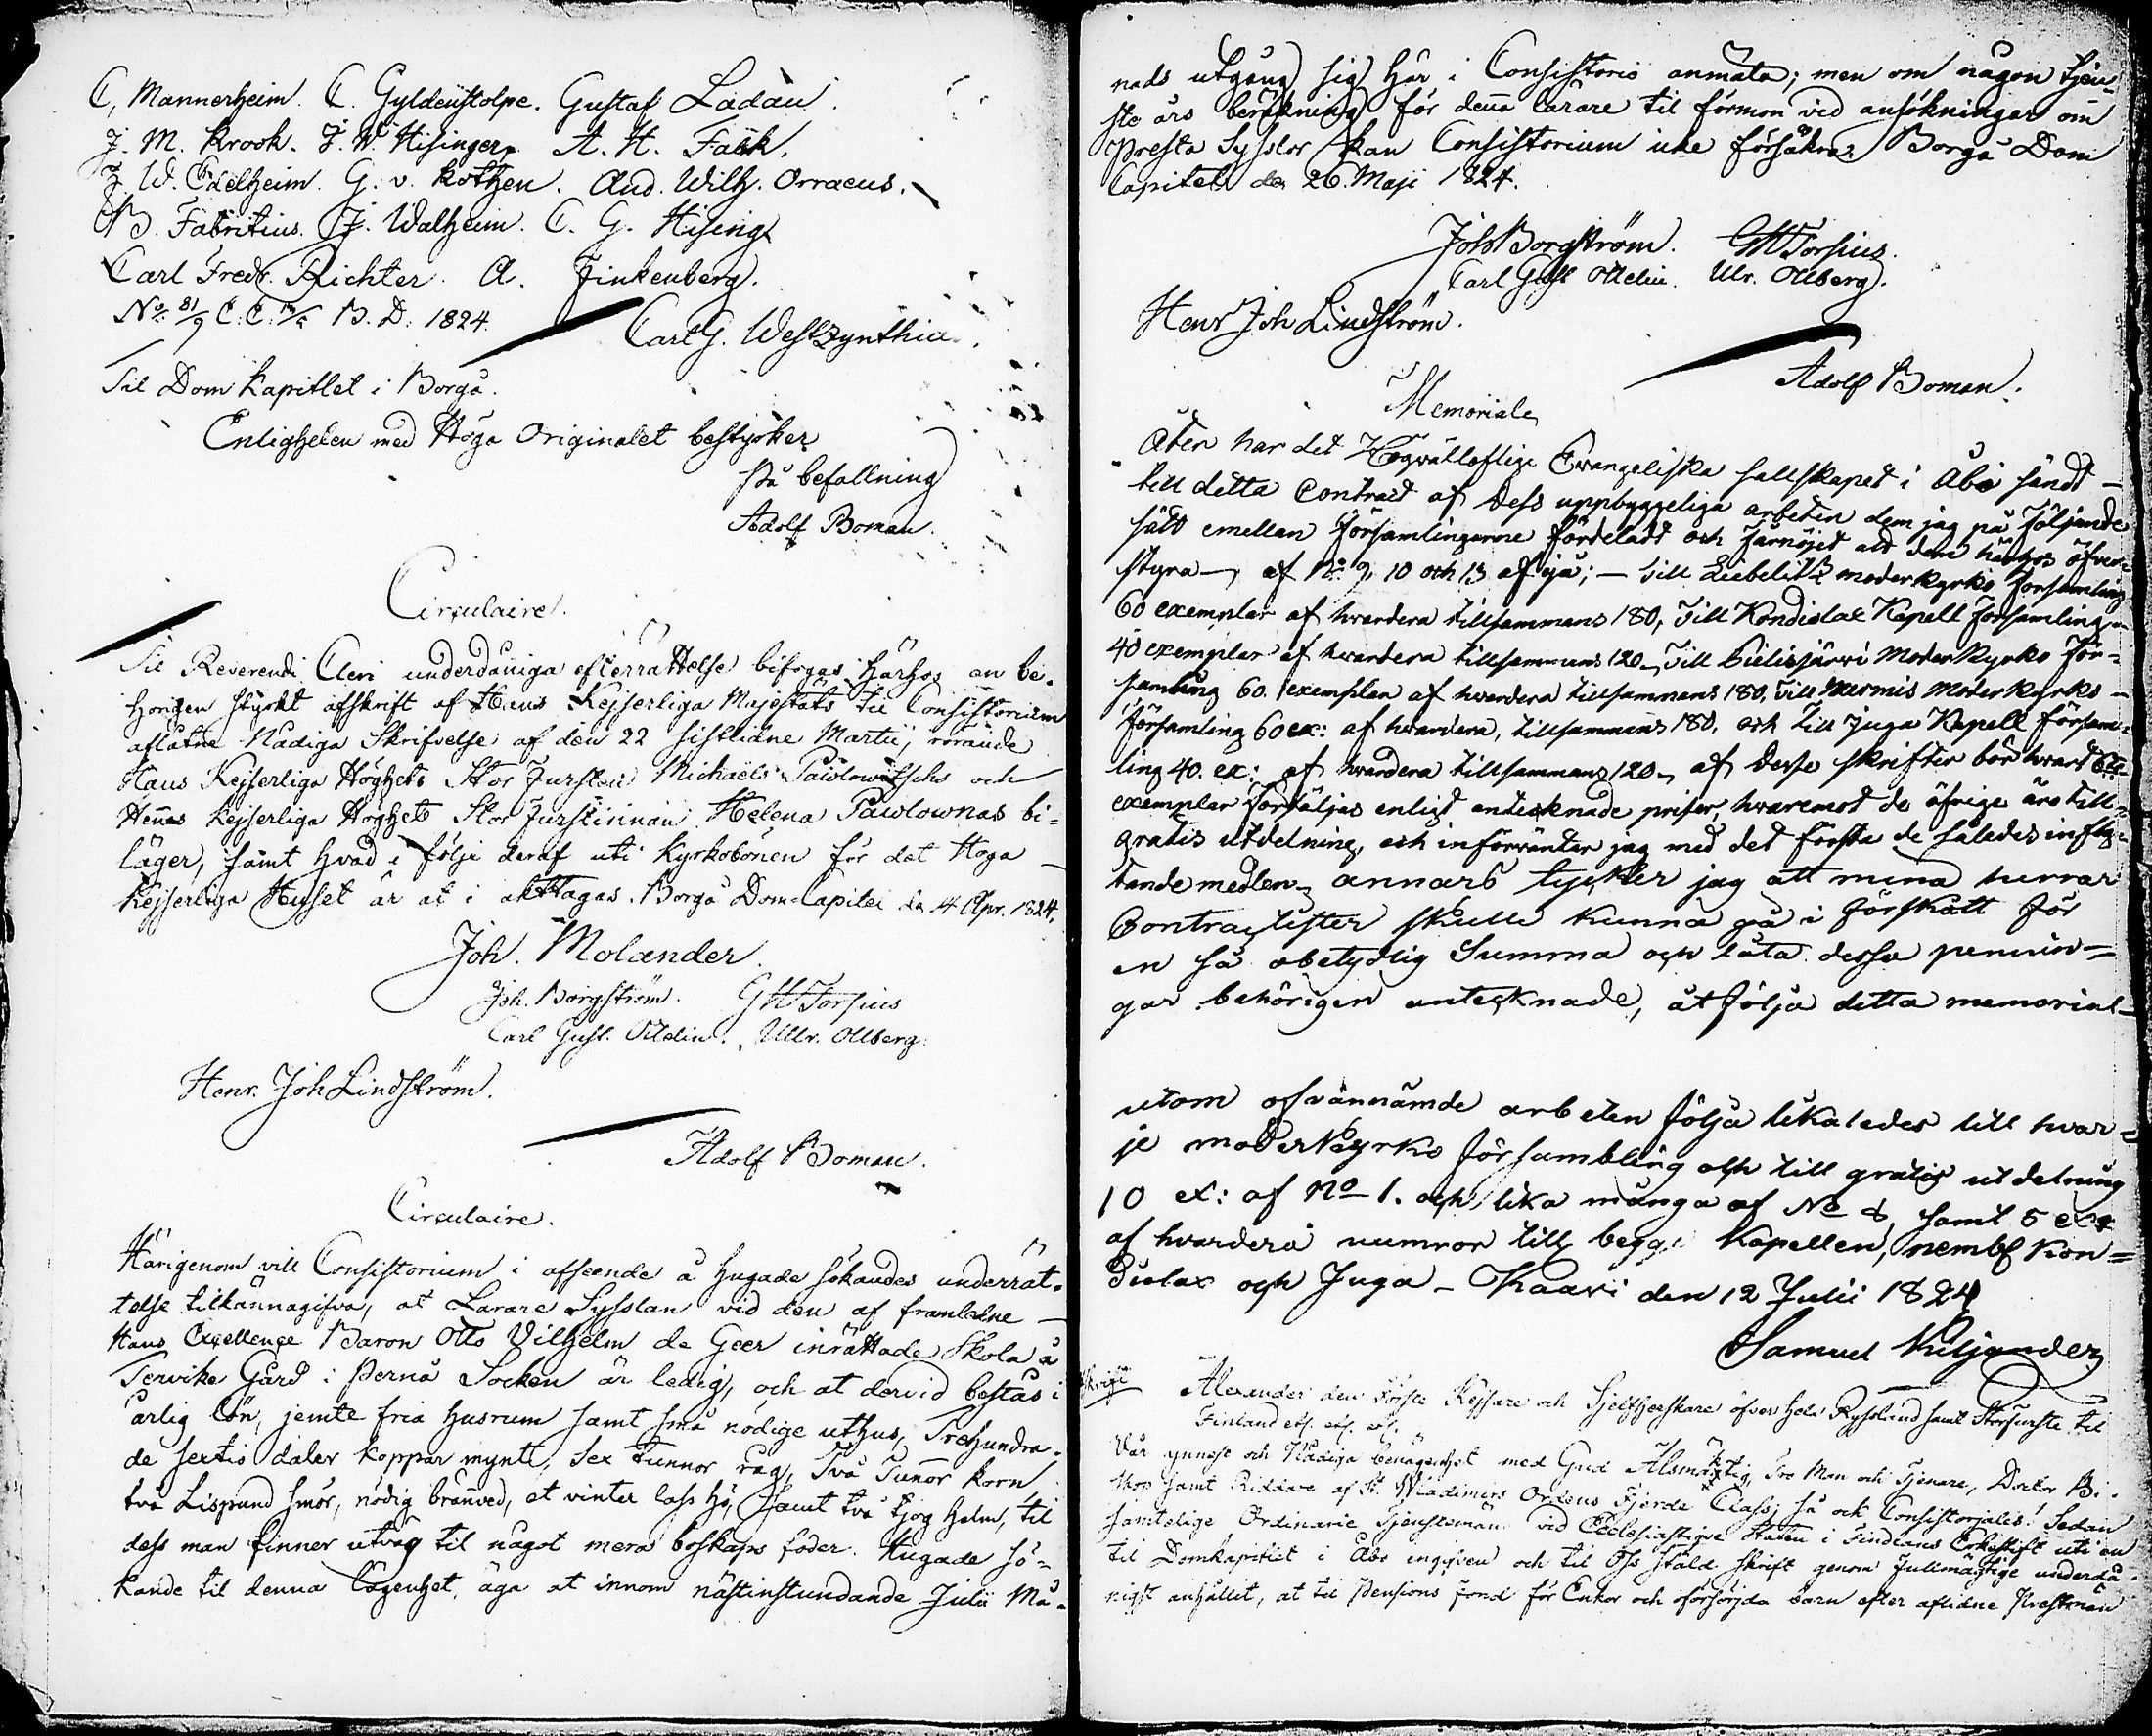 C, Mannerheim. C. Gyldenstolpe. Gustaf Ladau.
J. M. Krook. F. W. Hisinger. A. H. Falck.
J. W. Edelheim. G. v. Kothen. And. Wilh. Orraeus.
B. Fabritius. J. Walheim. C. G. Hising.
Carl Fredr. Richter. A. Finkenberg.
No: 81/9 C. C. B. D. 1824.
Carl G. Westzynthius.
Til Dom Kapitlet i Borgå.
Enligheten med Höga Originalet bestyrker
På befallning
Adolf Boman.
Circulaire.
Til Reverendi Cleri underdåniga efterrättelse bifogas härhos en be-
hörigen styrkt afskrift af Hans Kejserliga Majestäts til Consistorium
aflåtne Nådiga Skrifvelse af den 22 sistledne Martii, rörande
Hans Kejserliga Höghets Stor Furstens Michaels Pawlowitschs och
Hennes Kejserliga Höghets Stor Furstinnan Helena Pawlownas bi-
läger, samt hvad i följe deraf uti Kyrkobönen för det Höga
Kejserliga Huset är at i akttaga. Borgå Dom-Capitel d. 14 Apr. 1824.
Joh. Molander.
Joh. Borgström. GM Forsius
Carl Gust. Ottelin. Ullr. Ollberg.
Henr. Joh Lindström.
Adolf Boman.
Circulaire.
Härigenom vill Consistorium i afseende å hugade sökandes underrät-
telse tilkännagifva, at Lärare Sysslan vid den af framledne
Hans Excellence Baron Otto Vilhelm de Geer inrättade Skola å
Tervike Gård i Pernå Socken är ledig, och at dervid bestås i
årlig lön, jemte fria husrum samt små nödige uthus, Trehundra-
de sextio daler koppar mynt, Sex tunnor råg, Två Tunnor korn
två Lispund smör, nödig brännved, et vinter lass hö, samt två tjog halm, til
dess man finner utväg til något mera boskaps foder. Hugade sö-
kande til denna Lägenhet, äga at innom nästinstundande Julii Må-
nads utgång sig här i Consistorio anmäla; men om någon Tjen-
ste års beräkning för denna lärare til förmon vid ansökningar om
Presta Sysslor kan Consistorium icke försäkra. Borgå Dom
Capitel den 26. Maji 1824.
Joh Borgström. GM Forsius.
Carl Gust Ottelin. Ulr. Ollberg.
Henr Joh Lindström.
Adolf Boman.
Memorial
Åter har det Högvällofliga Evangeliska sällskapet i Åbo sändt
till detta Contract af Dess uppbyggeliga arbeten dem jag på följande
sätt emellan Församlingarne fördeladt och härhos öfver-
styra — af No: 9, 10 och 13 — Till Liebelitz moderkyrko Församling
60 exemplar af hvardera tillsammans 180, Till Kondiolax Kapell Församling
40 exemplar af hvardera tillsammans 120, Till Pielisjärvi Moderkyrko För-
samling 60. exemplar af hvardera tillsammans 180, Till Nurmis Moderkyrko
Församling 60 ex: af hvardera, tillsammans 180, och till Juga Kapell Försam-
ling 40. ex: af hvardera tillsammans 120, af desse skrifter bör hvart
exemplar försäljas enligt antecknade priser, hvaremot de öfrige äro till
gratis utdelning, och införväntar jag med det första de således infly-
tande medlen, annars tycker jag att mina herrar
Contractister skulle kunna gå i förskott för
en så obetydlig Summa och låta dessa pennin-
gar behörigen antecknade, åtfölja detta memorial
utom ofvannämde arbeten följa likaledes till hvar-
je moderkyrko försambling och till gratis utdelning
10 ex: af No 1. och lika många af No 8, samt 5 ex
af hvardera numror till begge Kapellen, nembl Kon-
diolax och Juga – Kaavi den 12 Julii 1824
Samuel Kiljander
Skrift
Alexander den Förste Kejsare och Sjelfherskare öfver hela Ryssland samt Storfurste til
Finland etc. etc. etc.
Vår ynnest och Nådiga benägenhet med Gud Alsmäktig, Tro Man och Tjenare, Doctor Bi-
skop samt Riddare af St. Wladimers Ordens Fjerde Class; så och Consistoriales! Sedan
samtelige Ordinarie Tjenstemän vid Ecclesiastique Staten i Finlands Erkestift uti en
til Domkapitlet i Åbo ingifven och til Oss stäld skrift genom Fullmägtige underdå-
nigst anhållit, at til Pensions fond för Enkor och oförsörjda barn efter aflidne Prestmän